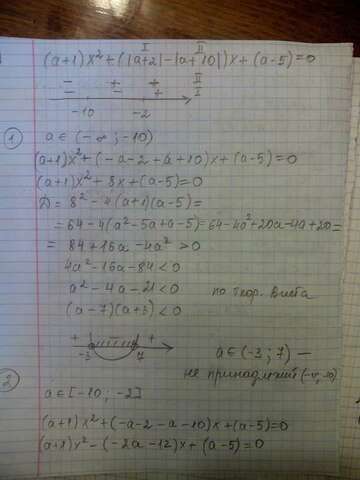 I II
(a+1)x²+(|a+2|-|a+10|)x+(a-5)=0
- + + II
- - + I
-10 -2
1 a∈(-∞;-10)
(a+1)x²+(-a-2+a+10)x+(a-5)=0
(a+1)x²+8x+(a-5)=0
D=8²-4(a+1)(a-5)=
=64-4(a²-5a+a-5)=64-4a²+20a-4a+20=
= 84+16a-4a²>0
4a²-16a-84<0
a²-4a-21<0 по теор. Виета
(a-7)(a+3)<0
+ - +
-3 7 a∈(-3;7) —
не принадлежит (-∞;-10)
2
a∈[-10;-2]
(a+1)x²+(-a-2-a-10)x+(a-5)=0
(a+1)x²-(-2a-12)x+(a-5)=0